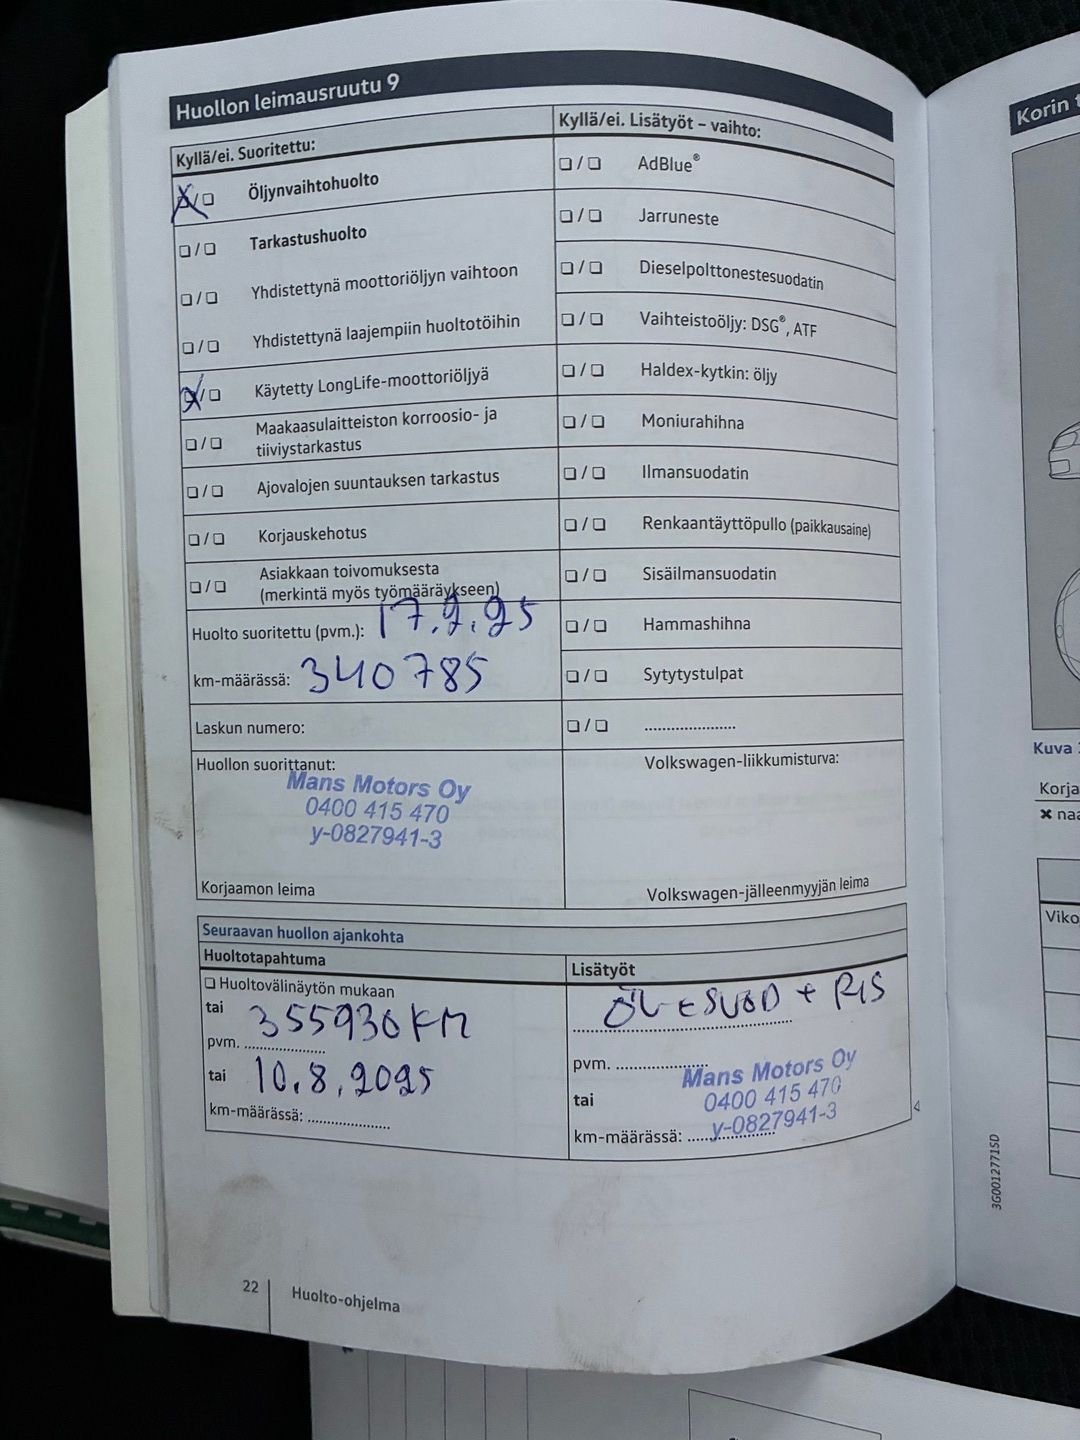 Huollon leimausruutu 9
Kyllä/ei. Suoritettu:
☐/☐ Öljynvaihtohuolto
☐/☐ Tarkastushuolto
☐/☐ Yhdistettynä moottoriöljyn vaihtoon
☐/☐ Yhdistettynä laajempiin huoltotöihin
☐/☐ Käytetty LongLife-moottoriöljyä
☐/☐ Maakaasulaitteiston korroosio- ja
tiiviystarkastus
☐/☐ Ajovalojen suuntauksen tarkastus
☐/☐ Korjauskehotus
☐/☐ Asiakkaan toivomuksesta
(merkintä myös työmääräykseen)
Huolto suoritettu (pvm.): 17.2.25
km-määrässä: 340785
Laskun numero:
Huollon suorittanut:
Mans Motors Oy
0400 415 470
y-0827941-3
Korjaamon leima
Kyllä/ei. Lisätyöt – vaihto:
☐/☐ AdBlue®
☐/☐ Jarruneste
☐/☐ Dieselpolttonestesuodatin
☐/☐ Vaihteistoöljy: DSG®, ATF
☐/☐ Haldex-kytkin: öljy
☐/☐ Moniurahihna
☐/☐ Ilmansuodatin
☐/☐ Renkaantäyttöpullo (paikkausaine)
☐/☐ Sisäilmansuodatin
☐/☐ Hammashihna
☐/☐ Sytytystulpat
☐/☐ ....................
Volkswagen-liikkumisturva:
Volkswagen-jälleenmyyjän leima
Seuraavan huollon ajankohta
Huoltotapahtuma
☐ Huoltovälinäytön mukaan
tai
355930 KM
pvm. ..................
tai 10.8.2025
km-määrässä: ..................
Lisätyöt
pvm. ....................
Mans Motors Oy
tai 0400 415 470
y-0827941-3
km-määrässä: ....................
3G0012771SD
22 Huolto-ohjelma
Korin
Kuva
Korja
Viko